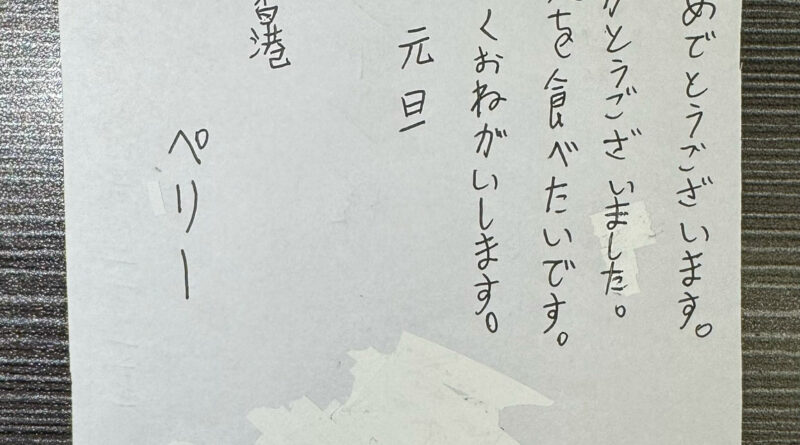 めでとうございます。
とうございました。
を食べたいです。
くおねがいします。
元旦
香港
ペリー